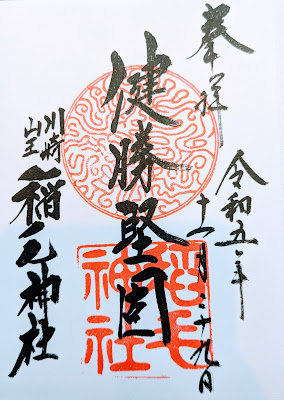 奉拝
令和五年
十一月二十九日
健勝堅固
川崎
山王
稲毛神社
稲毛
神社